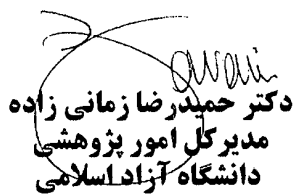 دکتر حمیدرضا زمانی زاده
مدیر کل امور پژوهشی
دانشگاه آزاد اسلامی